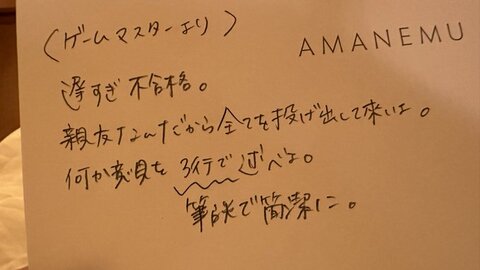 (ゲームマスターより)
AMANEMU
遅すぎ 不合格。
親友なんだから全てを投げ出して来いよ。
何か意見を3行で述べよ。
筆談で簡潔に。